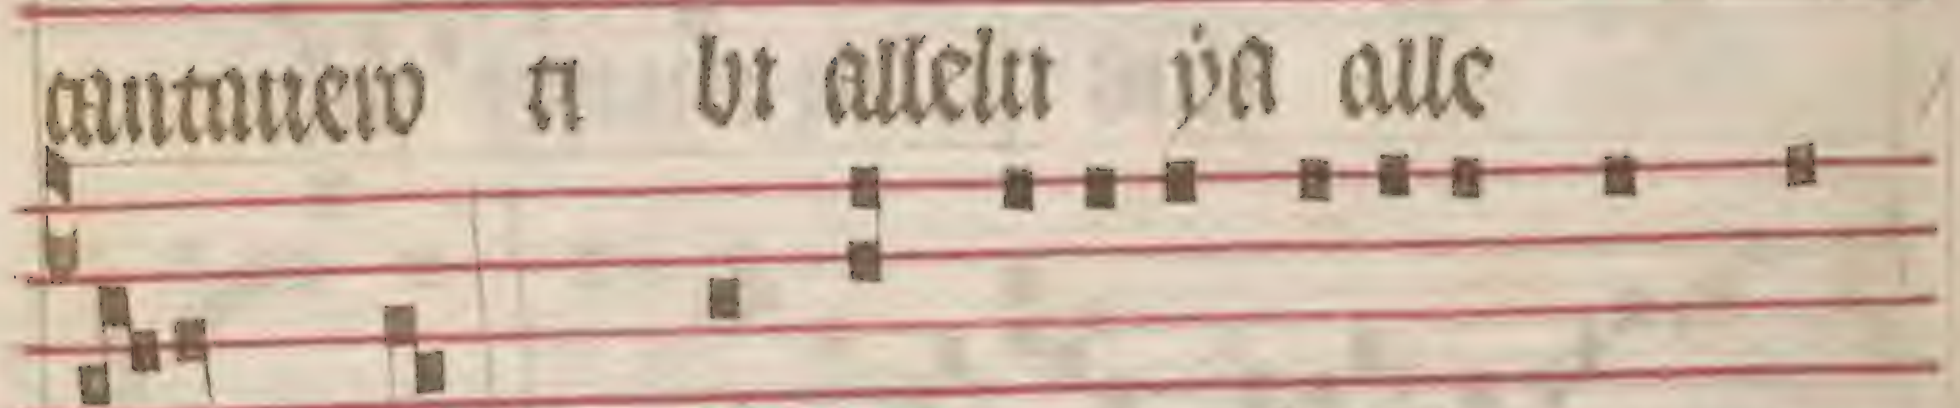 cantauero ti bi allelu ẏa alle